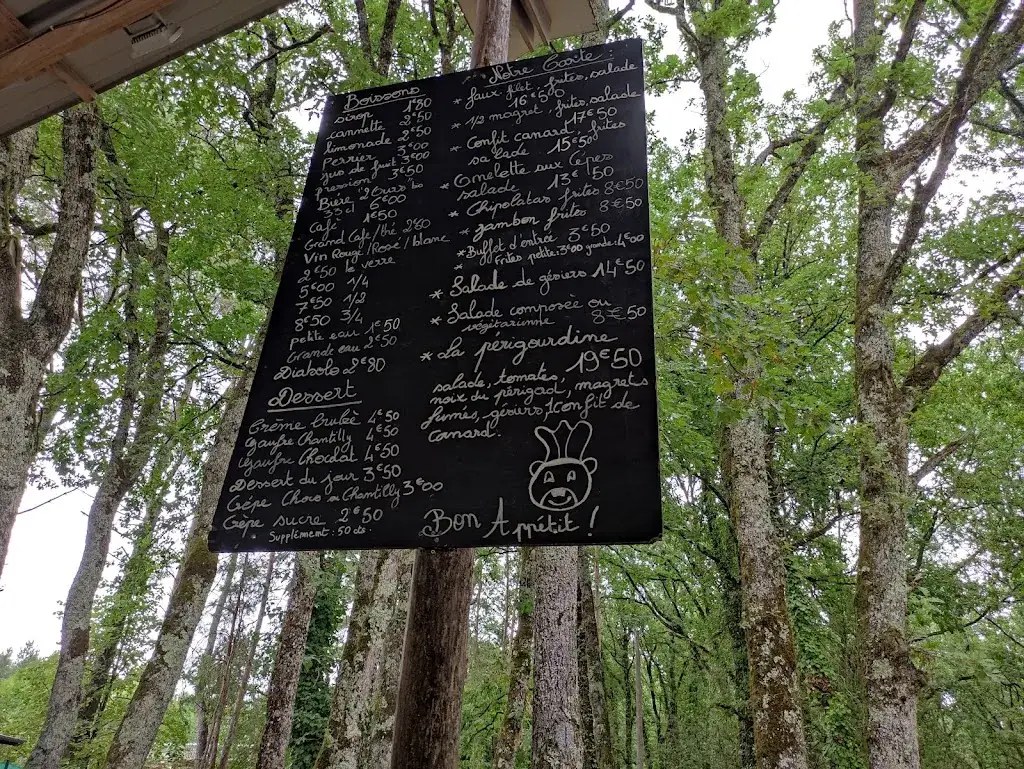 Boissons
sirop 1€50
cannette 2€50
limonade 2€50
perrier 3€00
jus de fruit 3€00
pression 3€50
Bière
33cl 6€00
Café 1€50
Grand Café/thé 2€80
Vin Rouge/Rosé/blanc
2€50 le verre
5€00 1/4
7€50 1/2
8€50 3/4
petite eau 1€50
Grande eau 2€50
Diabolo 2€80
Dessert
Crème brulée 4€50
Gaufre Chantilly 4€50
Gaufre Chocolat 4€50
Dessert du jour 3€50
Crêpe Choco ou Chantilly 3€00
Crêpe sucre 2€50
Supplément : 50 cts
Notre Carte :
* faux filet, frites, salade
16€50
* 1/2 magret, frites, salade
17€50
* Confit canard, frites
salade 15€50
* Omelette aux Cèpes
salade 13€50
* Chipolatas frites 8€50
* jambon frites 8€50
* Buffet d'entrée 3€50
* Frites petite: 3€00 grande: 4€00
* Salade de gésiers 14€50
* Salade composée ou
végétarienne 8€50
* La périgourdine
19€50
salade, tomates,
noix du périgord, magrets
fumés, gésiers, confit de
canard.
Bon Appétit !